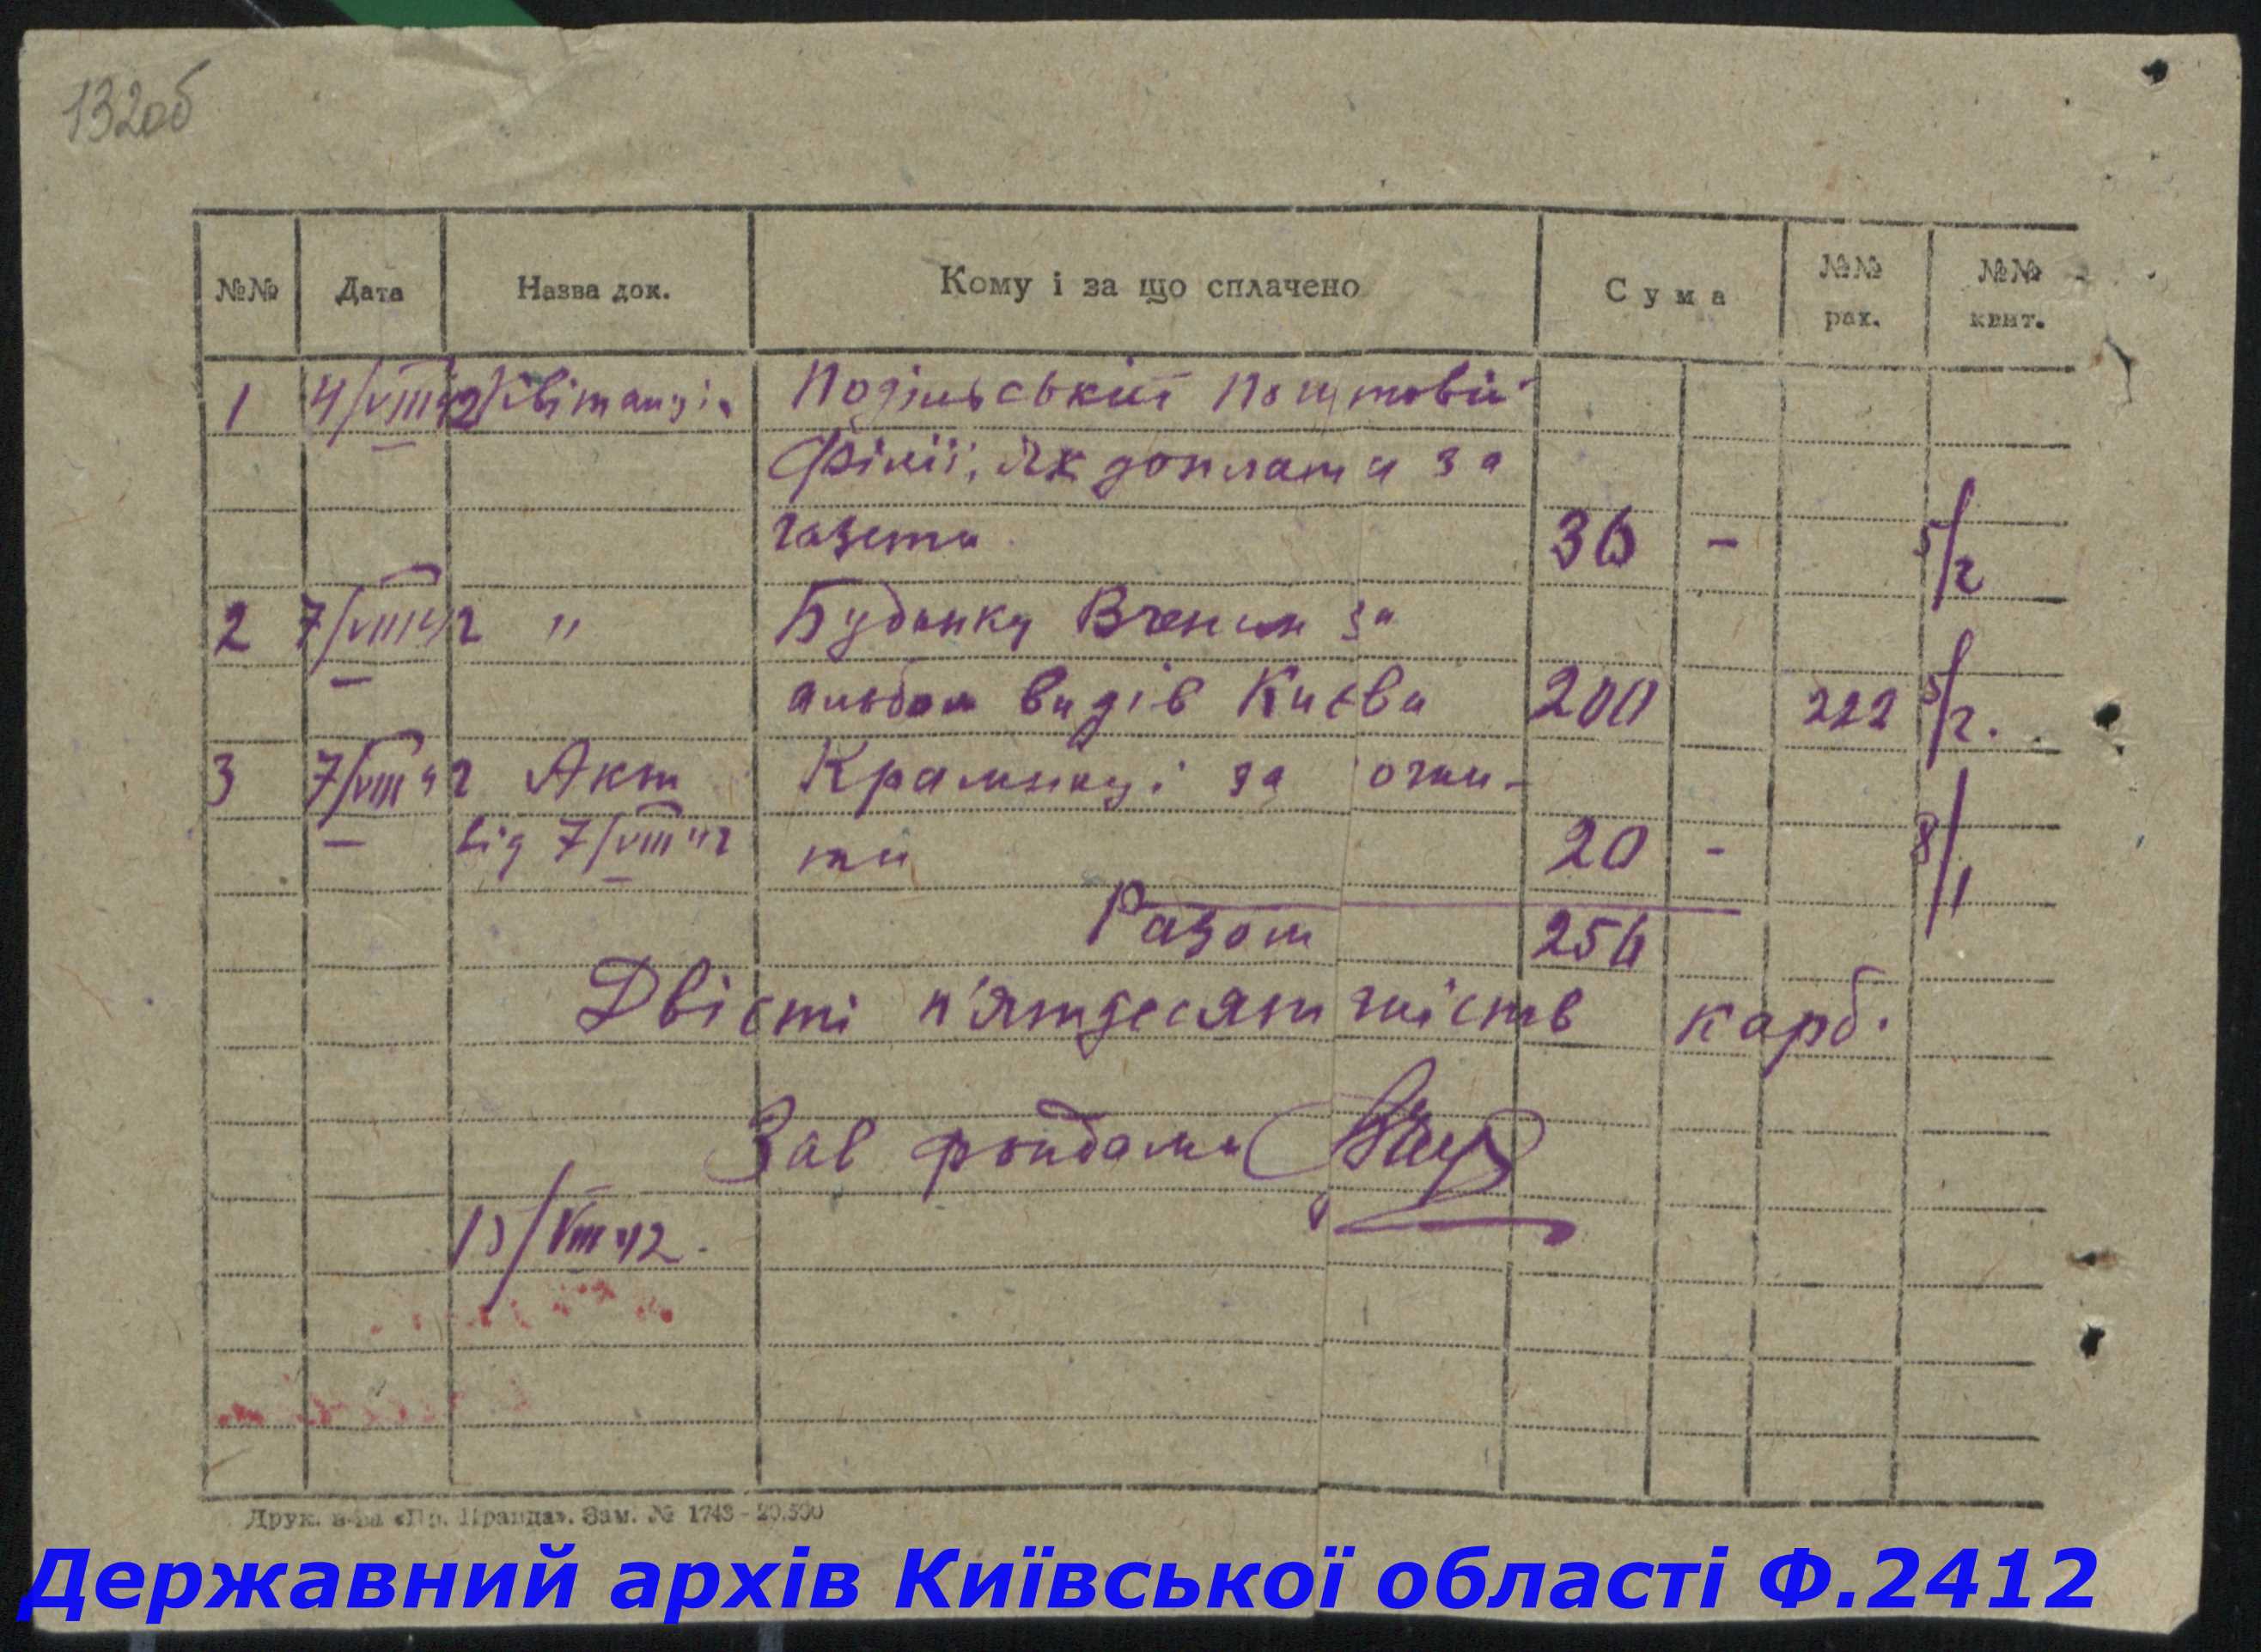 132об
№№ Дата Назва док. Кому і за що сплачено Сума №№ рах. №№ квит.
1 4/VIII 42 Квітанція Подільській Поштовій
Філії, як доплата за
газети 36 - 5/2
2 7/VIII 42 " Будинку Вчених за
альбом видів Києва 200 222 5/2.
3 7/VIII 42 Акт Крамниці за
від 7/VIII 42 20 - 8/1
Разом 256
Двісті п'ятдесят шість карб.
Зав фондами
/VIII 42.
Друк. в-ва «Пр. Правда». Зам. № 1743 - 20.500
Державний архів Київської області Ф.2412